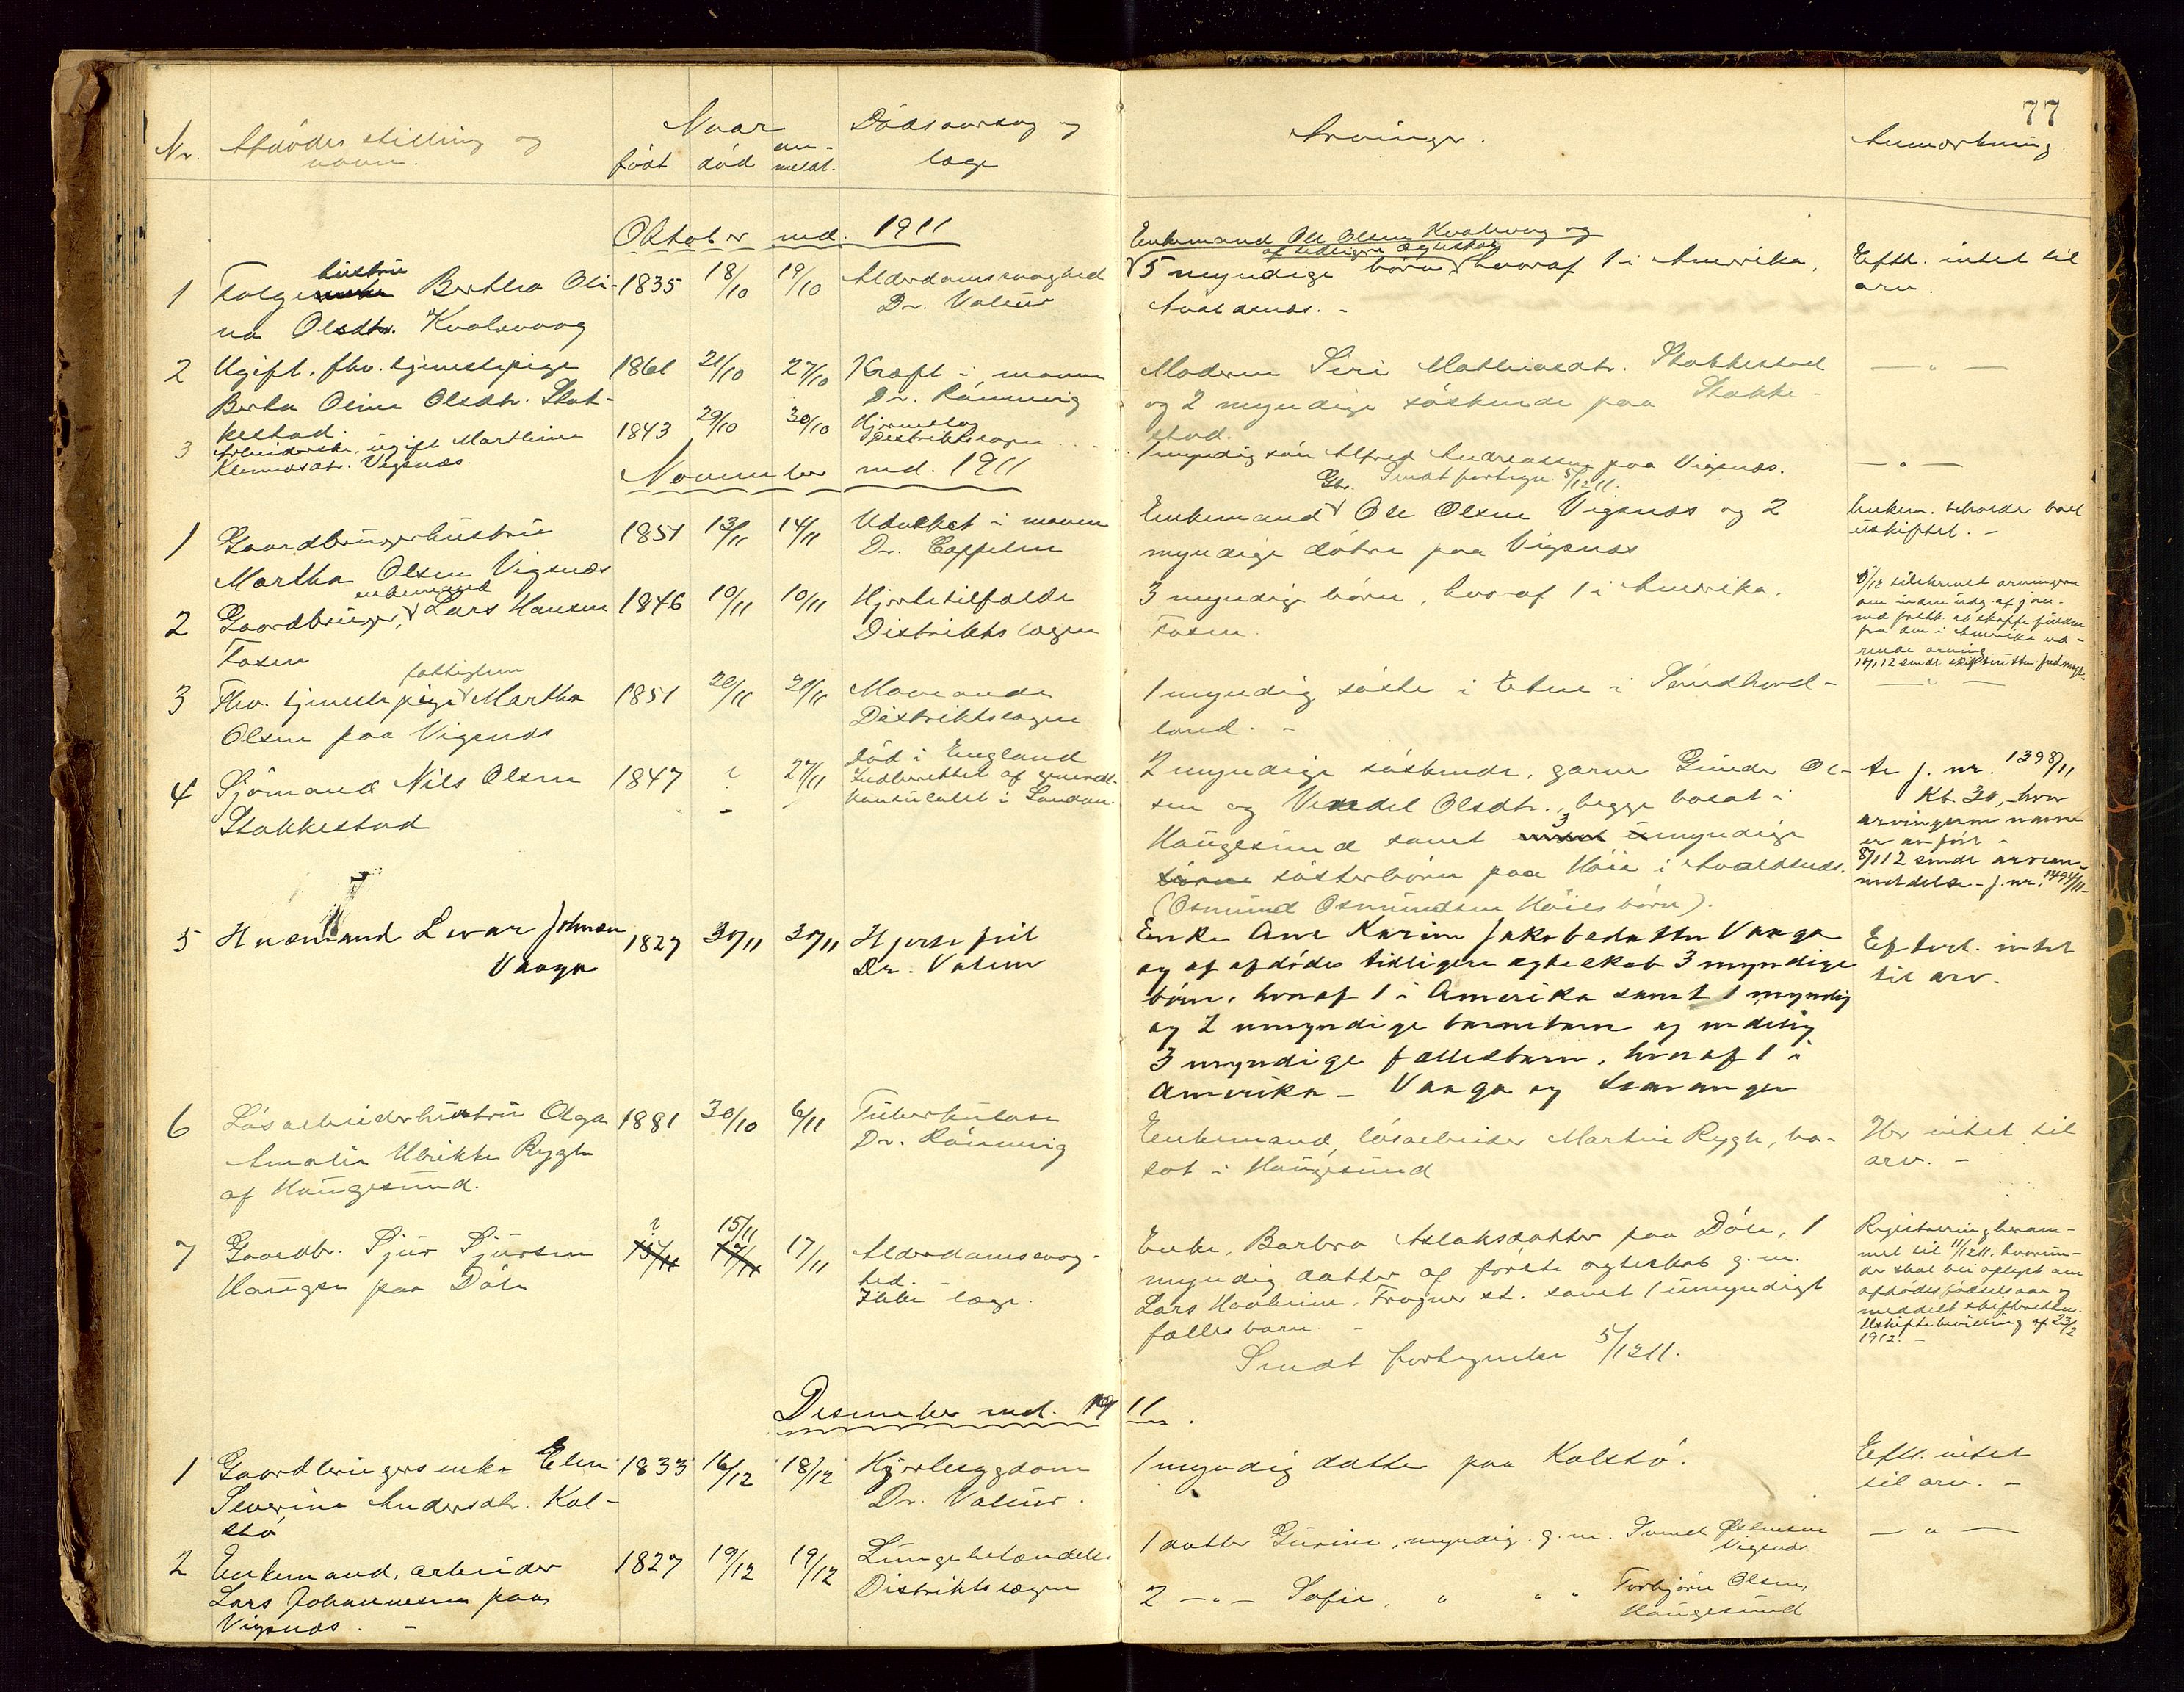 77
Nr. Afdødes stilling og navn. Naar født død anmeldt. Dødsaarsag og læge Arvinger. Anmerkning
Oktober md. 1911
1 Folgehustru Bertha Oli- 1835 18/10 19/10 Alderdomssvaghed
na Olsdtr. Kvalavaag Dr. Valeur
Enkemand Ole Olsen Kvalavaag og
af tidligere ægteskab
5 myndige børn, hvoraf 1 i Amerika.
Avaldsnæs. -
Efth. intet til
arv.
2 Ugift. fhv. tjenestepige 1861 21/10 27/10 Kræft i maven
Berta Oline Olsdtr. Stak- Dr. Rönnevig
kestad.
Moderen Siri Mathiasdtr. Stakkestad
og 2 myndige søskende paa Stakke-
stad.
— " —
3 Arbeiderske, ugift Marthine 1843 29/10 30/10 Hjerneslag
Klemmasdtr. Vigsnæs. Distriktslægen
1 myndig søn Alfred Andreassen paa Vigsnæs.
— " —
Sendt fortegn. 5/12 11.
November md. 1911
1 Gaardbrugerhustru 1851 13/11 14/11 Udvekst i maven
Martha Olsen Vigsnæs Dr. Cappelen
Gbr.
Enkemand Ole Olsen Vigsnæs og 2
myndige døtre paa Vigsnæs
Enkem. beholder boet
uskiftet. -
2 Gaardbruger, enkemand Lars Hansen 1846 10/11 10/11 Hjertetilfælde
Fosen Distriktslægen
3 myndige børn, hvoraf 1 i Amerika.
Fosen.
tilskrevet arvingerne
3 Fhv. tjenestepige fattiglem Martha 1851 20/11 21/11 Mavesaar
Olsen paa Vigsnæs Distriktslægen
1 myndig søster i Etne i Søndhord-
land. -
— " —
4 Sjømand Nils Olsen 1847 ? 27/11 Død i England
Stakkestad Indberettet af general-
konsulatet i London.
2 myndige søskende, garver Gunder Ol-
sen og Vendel Olsdtr., begge bosat i
Haugesund samt 3 umyndige
søsterbørn paa Høie i Avaldsnæs.
(Osmund Osmundsen Høies børn).
Se j. nr. 1398/11
Kb. 30, hvor
arvingernes navne
er anført -
8/1 12 sendt arvean-
meldelse - j. nr. 1494/11 -
5 Husmand Sivar Johnsen 1827 30/11 30/11 Hjertefeil
Vaaga Dr. Valeur
Enke Ane Karine Jakobsdatter Vaaga
og af afdødes tidligere ægteskab 3 myndige
børn, hvoraf 1 i Amerika samt 1 myndig
og 2 umyndige barnebarn og endelig
3 myndige fællesbarn, hvoraf 1 i
Amerika - Vaaga og Stavanger
Efterl. intet
til arv.
6 Løsarbeiderhustru Olga 1881 30/10 6/11 Tuberkulose
Amalie Ulrikke Rygh Dr. Rönnevig
af Haugesund.
Enkemand, løsarbeider Martin Rygh, bo-
sat i Haugesund
Har intet til
arv. -
7 Gaardbr. Sjur Sjursen ? 15/11 17/11 Alderdomssvag-
Haugen paa Döle hed. -
Ikke læge.
Enke, Barbra Aslaksdatter paa Döle, 1
myndig datter af første ægteskab g. m.
Lars Hovheim, Frogner st. samt 1 umyndigt
fællesbarn. -
Sendt fortegnelse 5/12 11.
Registrering beram-
met til 11/12 11, hvorun-
der skal bli oplyst om
afdødes fødselsaar og
meddelt skifteretten.
Uskiftebevilling af 23/2
1912. -
Desember md. 1911.
1 Gaardbrugersenke Elen 1833 16/12 18/12 Hjertesygdom
Severine Andersdtr. Kol- Dr. Valeur.
stø
1 myndig datter paa Kolstø.
Efth. intet
til arv. -
2 Enkemand, arbeider 1827 19/12 19/12 Lungebetændelse
Lars Johannesen paa Distriktslægen
Vigsnæs. -
1 datter Gurine, myndig. g. m. Tormod Østensen
Vigsnæs
— " —
2 — " — Sofie, " " " Torbjørn Olsen,
Haugesund